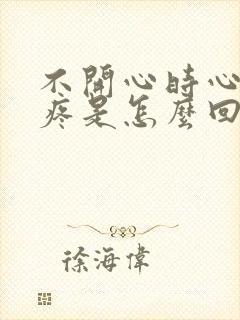 不開心時心
疼是怎麼回
徐海偉